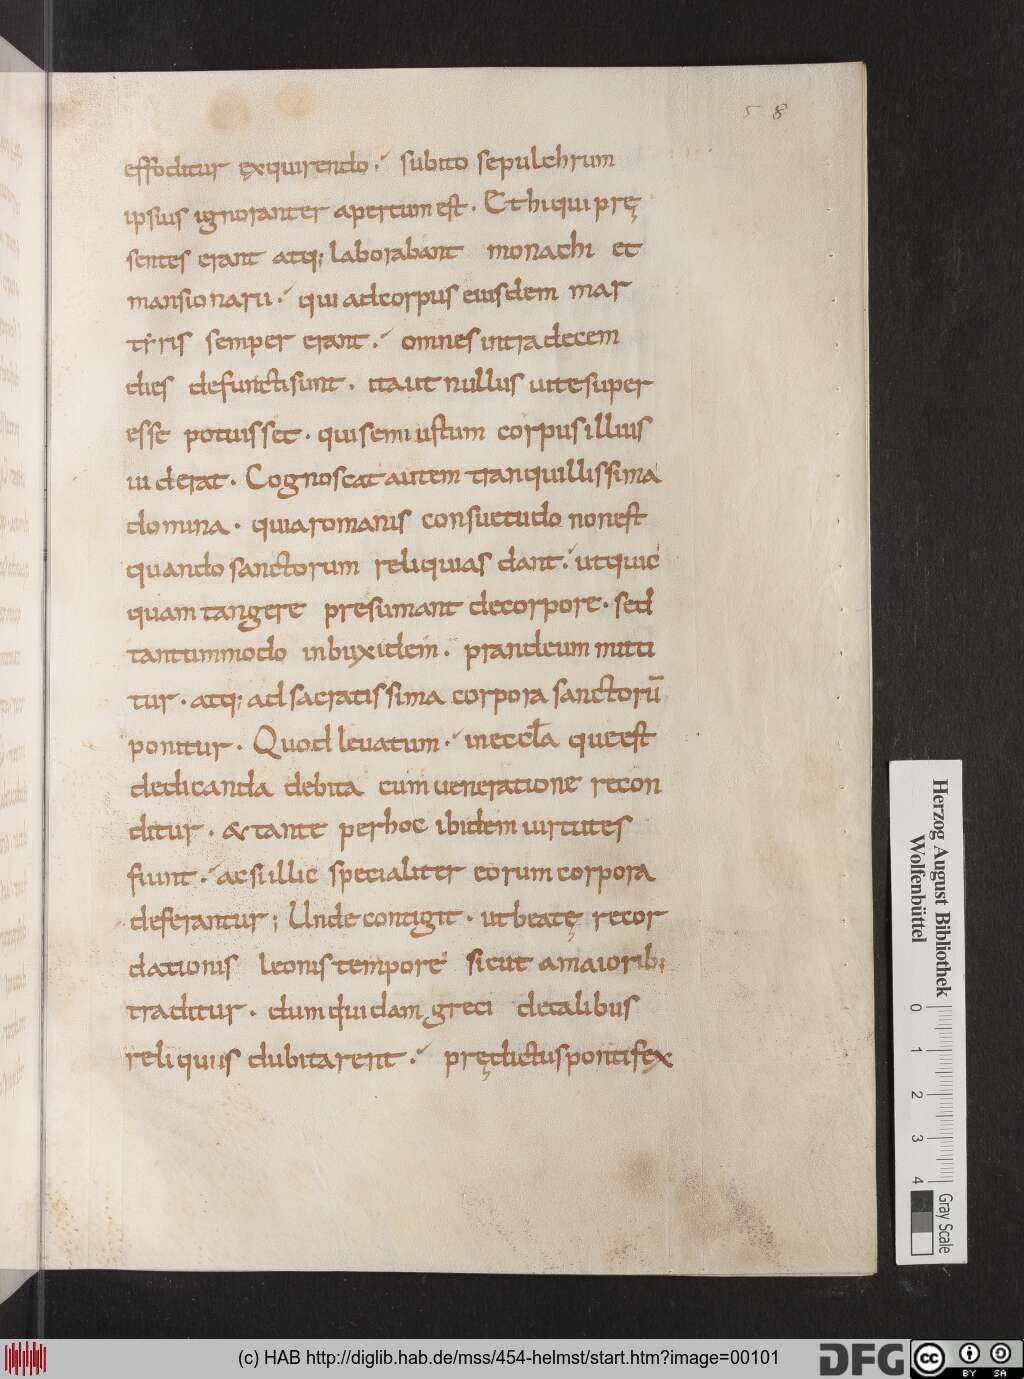 58
effoditur exquirendo. subito sepulchrum
ipsius ignoranter apertum est. Et hi qui prę
sentes erant atq; laborabant monachi et
mansionarii. qui ad corpus eiusdem mar
tẏris semper erant. omnes intra decem
dies defuncti sunt. ita ut nullus uite super
esse potuisset. qui semiustum corpus illius
uiderat. Cognoscat autem tranquillissima
domina. quia romanis consuetudo non est
quando sanctorum reliquias dant. ut quic
quam tangere presumant de corpore. sed
tantummodo in buxidem. prandeum mitti
tur. atq; ad sacratissima corpora sanctorū
ponitur. Quod leuatum. in eccła que est
dedicanda debita cum ueneratione recon
ditur. & tante per hoc ibidem uirtutes
fiunt. ac si illic specialiter eorum corpora
deferantur; Unde contigit. ut beatę recor
dationis leonis tempore sicut a maiorib;
traditur. dum quidam greci de talibus
reliquiis dubitarent. prędictus pontifex
Herzog August Bibliothek
Wolfenbüttel
0 1 2 3 4
Gray Scale
(c) HAB http://diglib.hab.de/mss/454-helmst/start.htm?image=00101
DFG
cc BY SA